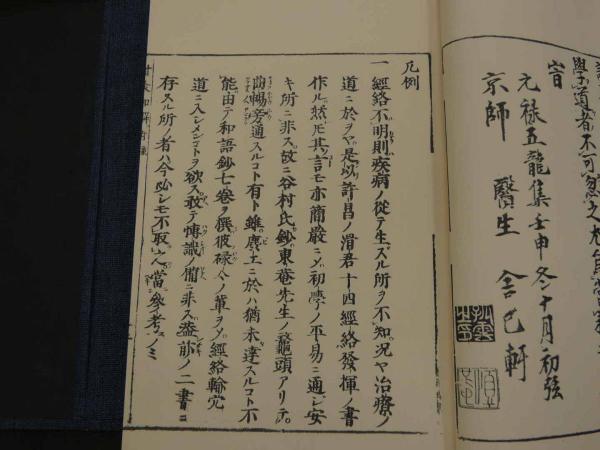 學道者不可忽之
旹
元祿五龍集壬申冬十月初弦
京師 醫生 含弘軒
凡例
一 經絡不明則疾病ノ從テ生ズル所ヲ不知況ヤ治療ノ
道ニ於ヲヤ是以許昌ノ滑君十四經絡發揮ノ書
作ル然𪜈其言モ亦簡嚴ニ〆初學ノ平易ニ通ジ安
キ所ニ非ス故ニ谷村氏鈔東菴先生ノ鼇頭アリテ
曲暢旁通スルコト有ト雖麈上ニ於ハ猶未達スルコト不
能由テ和語鈔七卷ヲ撰彼碌々ノ輩ヲ〆經絡輸穴
道ニ入シメンコトヲ欲ス敢テ慱識ノ備ニ非ス蓋前ノ二書ニ
存スル所ノ者ハ今必シモ不取人當參考ノミ